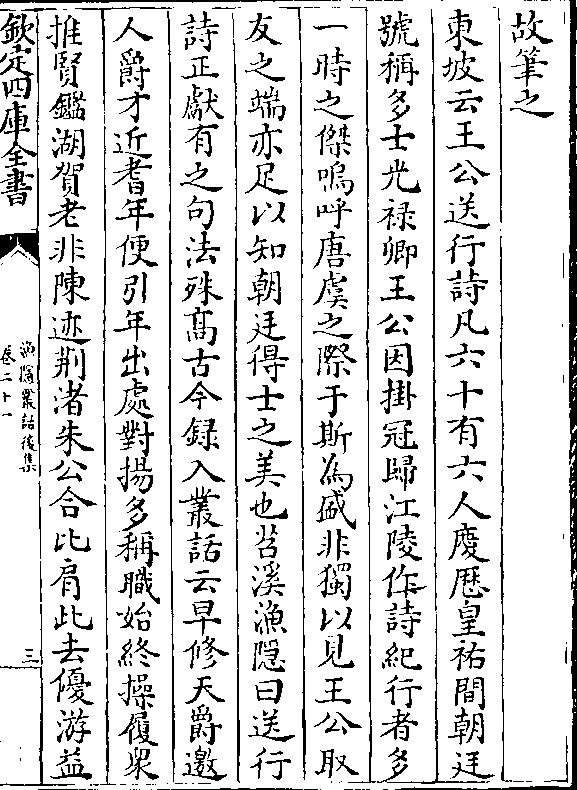 故筆之
東坡云王公送行詩凡六十有六人慶厯皇祐間朝廷
號稱多士光禄卿王公因掛冠歸江陵作詩紀行者多
一時之傑嗚呼唐虞之際于斯為盛非獨以見王公取
友之端亦足以知朝廷得士之美也苕溪漁隱曰送行
詩正獻有之句法殊髙古今録入叢話云早修天爵邀
人爵才近耆年便引年出處對揚多稱職始終操履衆
推賢鑑湖賀老非陳迹荆渚朱公合比肩此去優游益
欽定四庫全書
漁隱叢話後集
卷二十一
三